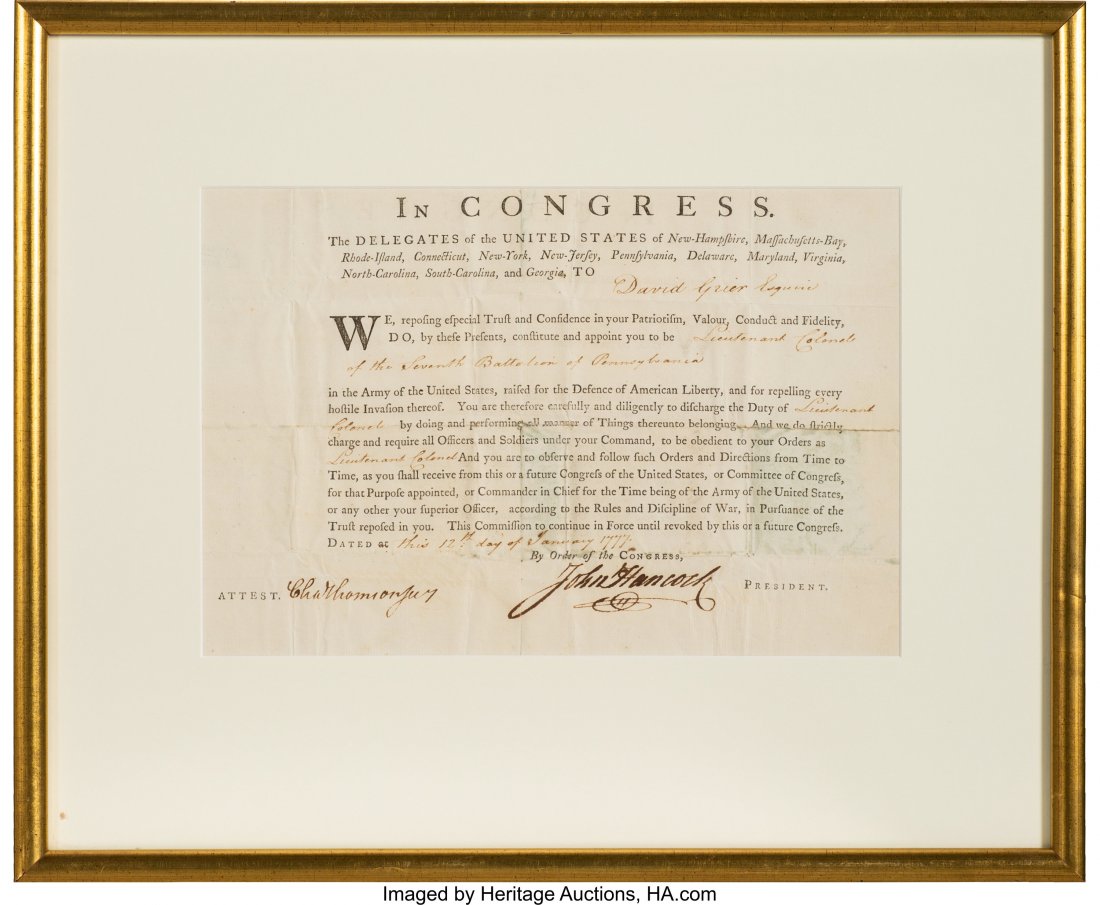 In CONGRESS.
The DELEGATES of the UNITED STATES of New-Hampſhire, Maſſachuſetts-Bay,
Rhode-Iſland, Connecticut, New-York, New-Jerſey, Pennſylvania, Delaware, Maryland, Virginia,
North-Carolina, South-Carolina, and Georgia, TO
David Grier Esquire
WE, repoſing eſpecial Truſt and Confidence in your Patriotiſm, Valour, Conduct and Fidelity,
DO, by theſe Preſents, conſtitute and appoint you to be Lieutenant Colonel
of the Seventh Battalion of Pennsylvania
in the Army of the United States, raiſed for the Defence of American Liberty, and for repelling every
hoſtile Invaſion thereof. You are therefore carefully and diligently to diſcharge the Duty of Lieutenant
Colonel by doing and performing all manner of Things thereunto belonging. And we do ſtrictly
charge and require all Officers and Soldiers under your Command, to be obedient to your Orders as
Lieutenant Colonel And you are to obſerve and follow ſuch Orders and Directions from Time to
Time, as you ſhall receive from this or a future Congreſs of the United States, or Committee of Congreſs,
for that Purpoſe appointed, or Commander in Chief for the Time being of the Army of the United States,
or any other your ſuperior Officer, according to the Rules and Diſcipline of War, in Purſuance of the
Truſt repoſed in you. This Commiſſion to continue in Force until revoked by this or a future Congreſs.
DATED at this 12th day of January 1777.
By Order of the CONGRESS,
John Hancock PRESIDENT.
ATTEST. Cha Thomson Secy
Imaged by Heritage Auctions, HA.com